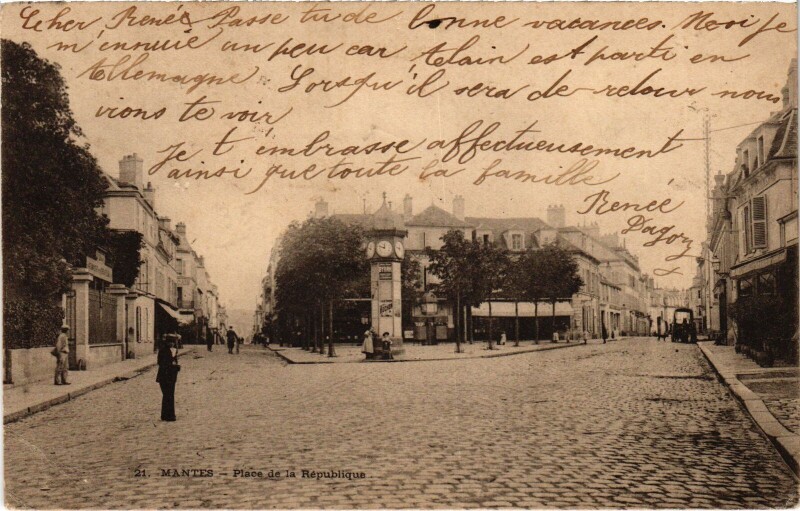 Cher Renée Passe tu de bonne vacances. Moi je
m'ennuie un peu car Alain est parti en
Allemagne Lorsqu'il sera de retour nous
virons te voir
Je t'embrasse affectueusement
ainsi que toute ta famille
Renée
Dagory
21. MANTES - Place de la République